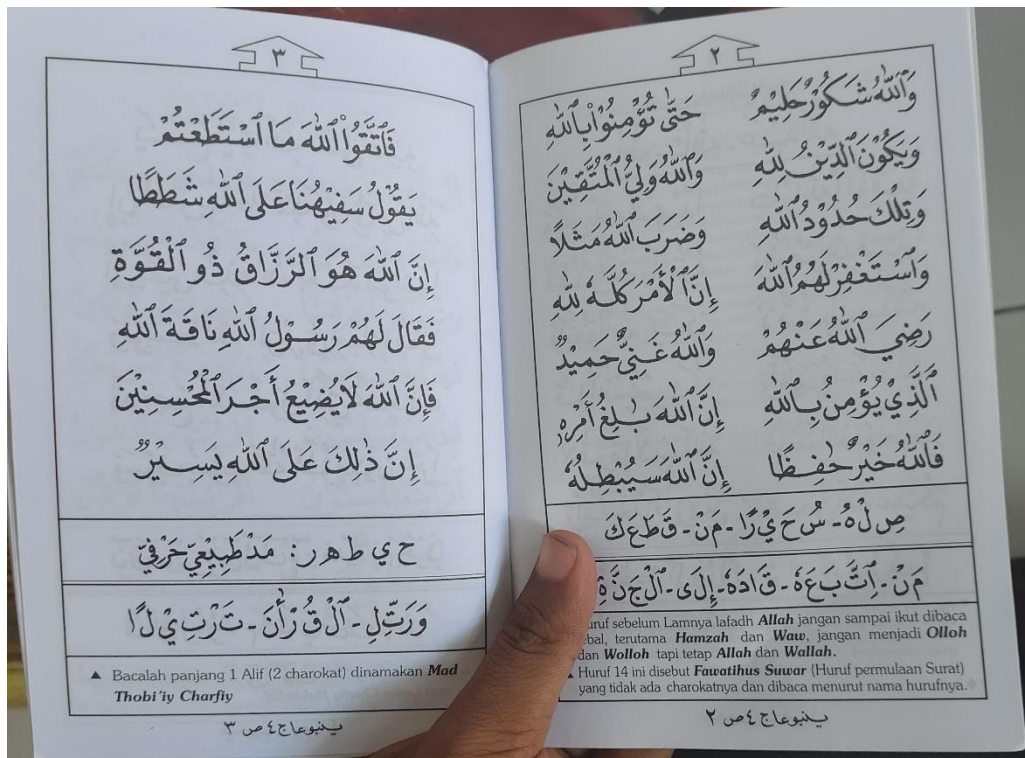 ٢
وَٱللّٰهُ شَكُوْرٌ حَلِيْمٌ حَتّٰى تُؤْمِنُوْا بِٱللّٰهِ
وَيَكُوْنَ ٱلدِّيْنُ لِلّٰهِ وَٱللّٰهُ وَلِيُّ ٱلْمُتَّقِيْنَ
وَتِلْكَ حُدُوْدُ ٱللّٰهِ وَضَرَبَ ٱللّٰهُ مَثَلًا
وَٱسْتَغْفِرْ لَهُمُ ٱللّٰهَ إِنَّ ٱلْأَمْرَ كُلَّهٗ لِلّٰهِ
رَضِيَ ٱللّٰهُ عَنْهُمْ وَٱللّٰهُ غَنِيٌّ حَمِيْدٌ
ٱلَّذِيْ يُؤْمِنُ بِٱللّٰهِ إِنَّ ٱللّٰهَ بٰلِغُ أَمْرِهٖ
فَٱللّٰهُ خَيْرٌ حٰفِظًا إِنَّ ٱللّٰهَ سَيُبْطِلُهٗ
صِ لْ هُ - سُ حَ يْ رًا - مَ نْ - قَ طَ عَ كَ
مَ نْ - اِ تَّ بَ عَ هٗ - قَ ا دَ هٗ - إِ لَ ى - الْ جَ نَّ ةِ
Huruf sebelum Lamnya lafadh Allah jangan sampai ikut dibaca
tebal, terutama Hamzah dan Waw, jangan menjadi Olloh
dan Wolloh tapi tetap Allah dan Wallah.
▲ Huruf 14 ini disebut Fawatihus Suwar (Huruf permulaan Surat)
yang tidak ada charokatnya dan dibaca menurut nama hurufnya.
ينبوعا ج ٤ ص ٢
٣
فَٱتَّقُوا۟ ٱللّٰهَ مَا ٱسْتَطَعْتُمْ
يَقُوْلُ سَفِيْهُنَا عَلَى ٱللّٰهِ شَطَطًا
إِنَّ ٱللّٰهَ هُوَ ٱلرَّزَّاقُ ذُو ٱلْقُوَّةِ
فَقَالَ لَهُمْ رَسُوْلُ ٱللّٰهِ نَاقَةَ ٱللّٰهِ
فَإِنَّ ٱللّٰهَ لَا يُضِيْعُ أَجْرَ ٱلْمُحْسِنِيْنَ
إِنَّ ذٰلِكَ عَلَى ٱللّٰهِ يَسِيْرٌ
ح ي ط هـ ر : مَدْ طَبِيْعِيّ حَرْفِيّ
وَ رَ تِّ لِ - الْ قُ رْ أٰ نَ - تَ رْ تِ يْ لً ا
▲ Bacalah panjang 1 Alif (2 charokat) dinamakan Mad
Thobi'iy Charfiy
ينبوعا ج ٤ ص ٣